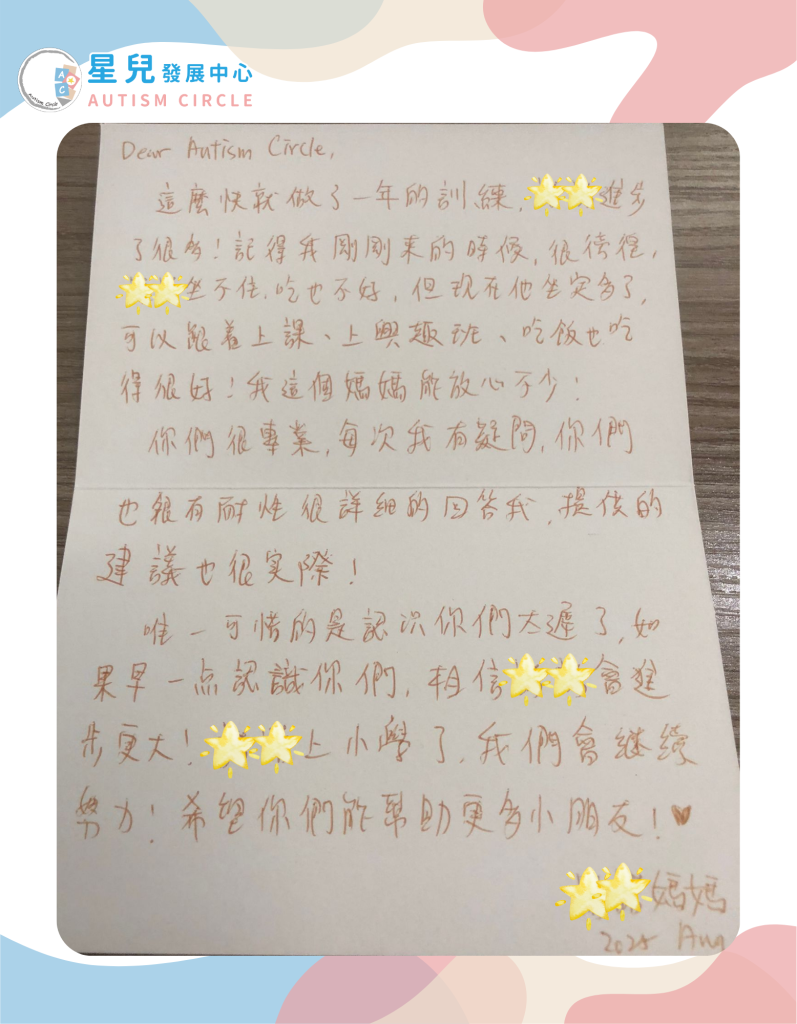 星兒發展中心
AUTISM CIRCLE
Dear Autism Circle,
這麼快就做了一年的訓練,進步
了很多!記得我剛剛來的時候,很徬徨,
坐不住,吃也不好,但現在他坐定多了,
可以跟着上課、上興趣班、吃飯也吃
得很好!我這個媽媽能放心不少!
你們很專業,每次我有疑問,你們
也很有耐性很詳細的回答我,提供的
建議也很实際!
唯一可惜的是認識你們太遲了,如
果早一点認識你們,相信會進
步更大!上小學了,我們會継續
努力!希望你們能幫助更多小朋友!
媽媽
2025 Aug